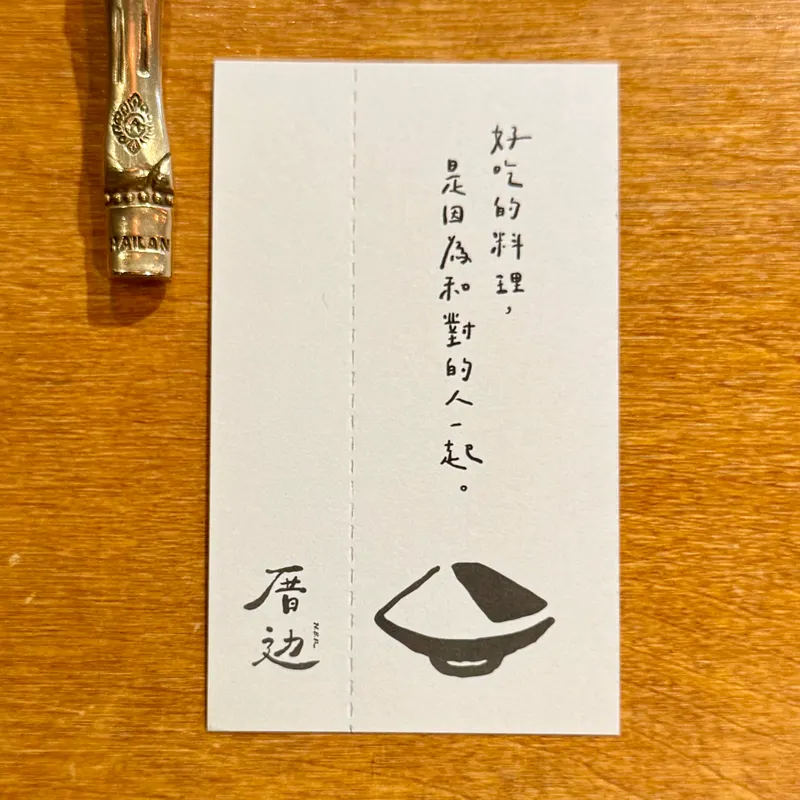 好吃的料理，
是因為和對的人一起。
厝边
HAILAN